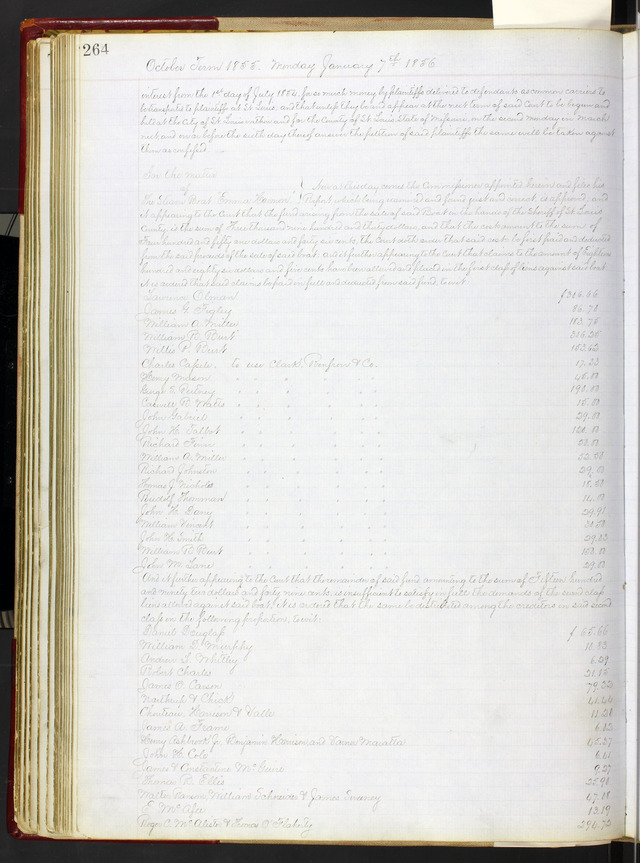 264
October Term 1855. Monday January 7th 1856
interest from the 1st day of July 1854, for so much money by plaintiffs delivered to defendants as common carriers to
be transported to plaintiffs at St Louis, and that unless they be and appear at the next term of said Court to be begun and
held at the City of St Louis within and for the County of St Louis State of Missouri on the second monday in March
next and on or before the sixth day thereof answer the petition of said plaintiffs the same will be taken against
them as confessed
In the matter
of
The Steam Boat Emma Harmon
Now at this day comes the Commissioner appointed herein and files his
Report which being examined and found just and correct is approved, and
it appearing to the Court that the fund arising from the sale of said Boat in the hands of the Sheriff of St Louis
County is the sum of Three thousand nine hundred and thirty dollars, and that the costs amount to the sum of
Four hundred and fifty one dollars and forty six cents, the Court doth order that said costs be first paid and deducted
from the said proceeds of the sale of said boat. And it further appearing to the Court that claims to the amount of Eighteen
hundred and eighty six dollars and five cents have been allowed and placed in the first class of liens against said boat
It is ordered that said claims be paid in full and deducted from said fund, to wit
Lawrence $306.66
James G. 86.70
William A. Miller 183.75
William R. Burt
Willis P. Burt
Charles to use Clark, Renfrew & Co. 17.33
Henry Mason 45.00
Benj. E. 190.00
B. Watts 15.00
John Gabriel 29.00
John H. Talbot 100.00
Richard
William A. Miller
Richard Johnston 29.00
Thomas J. Nicholas 18.00
Rudolf
John H. Dany 29.91
William Vincent 31.00
John H. Smith 29.33
William R. Burt
John M. Lane 29.00
And it further appearing to the Court that the remainder of said fund amounting to the sum of Fifteen hundred
and ninety two dollars and forty nine cents, is insufficient to satisfy in full the demands of the second class
liens allowed against said boat, it is ordered that the same be distributed among the creditors in said second
class in the following proportions, to wit:
Daniel Douglass $65.66
William D. Murphy 11.83
Andrew S. Whitley 6.09
Robert Charles 31.15
James O. Carson 79.32
Northrup & Chick 41.44
Chouteau, Harrison & Valle 11.28
James A. Frame 6.82
Henry Ashbrook Jr, Benjamin Harrison and James Maratta 65.37
John W. Cole 6.61
James & Constantine McGuire 9.37
Thomas R. Ellis 25.91
Walter Carson, William Schneider & James Sweeney 67.18
E. McAfee 13.19
Roger C. McAlister & Thomas O'Flaherty 296.73